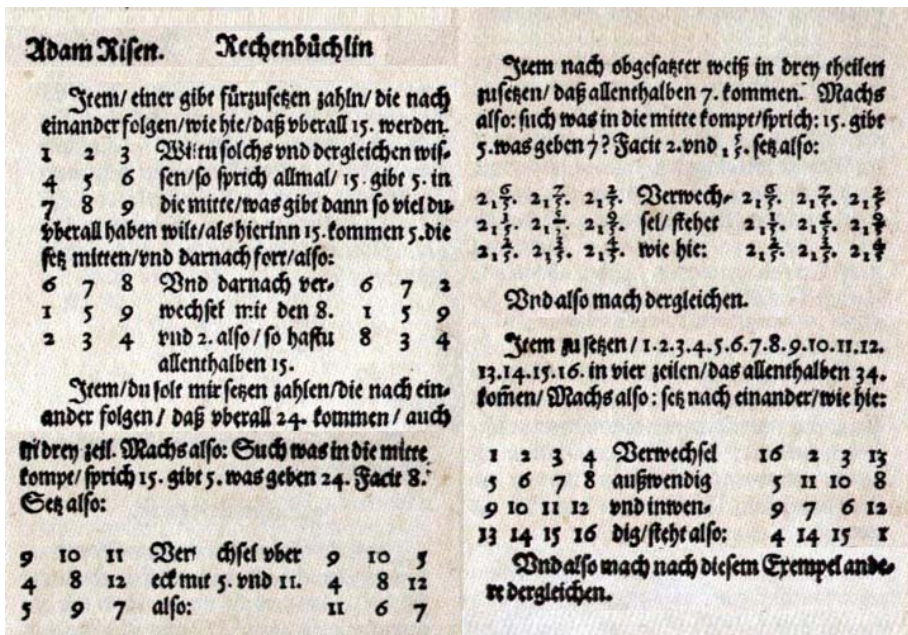 Adam Risen. Rechenbüchlin
Item/ einer gibt fürzusetzen zahln/ die nach
einander folgen/wie hie/daß vberall 15. werden.
1 2 3 Wiltu solchs vnd dergleichen wis-
4 5 6 sen/so sprich allmal/ 15. gibt 5. in
7 8 9 die mitte/was gibt dann so viel du
vberall haben wilt/als hierinn 15. kommen 5. die
setz mitten/vnd darnach fort/also:
6 7 8 Vnd darnach ver- 6 7 2
1 5 9 wechsel mit den 8. 1 5 9
2 3 4 vnd 2. also/so hastu 8 3 4
allenthalben 15.
Item/du solt mir setzen zahlen/die nach ein-
ander folgen/ daß vberall 24. kommen/ auch
in drey zeil. Machs also: Such was in die mitte
kompt/ sprich 15. gibt 5. was geben 24. Facit 8.
Setz also:
9 10 11 Ver chsel vber 9 10 5
4 8 12 eck mit 5. vnd 11. 4 8 12
5 9 7 also: 11 6 7
Item nach obgesatzter weiß in drey theilen
zusetzen/ daß allenthalben 7. kommen. Machs
also: such was in die mitte kompt/sprich: 15. gibt
5. was geben 7? Facit 2. vnd 5/15. setz also:
2 6/15. 2 7/15. 2 2/15. Verwech- 2 6/15. 2 7/15. 2 2/15
2 1/15. 2 5/15. 2 9/15. sel/ stehet 2 1/15. 2 5/15. 2 9/15
2 2/15. 2 3/15. 2 4/15. wie hie: 2 2/15. 2 3/15. 2 4/15
Vnd also mach dergleichen.
Item zu setzen/ 1.2.3.4.5.6.7.8.9.10.11.12.
13.14.15.16. in vier zeilen/das allenthalben 34.
kom̄en/ Machs also: setz nach einander/wie hie:
1 2 3 4 Verwechsel 16 2 3 13
5 6 7 8 außwendig 5 11 10 8
9 10 11 12 vnd inwen- 9 7 6 12
13 14 15 16 dig/steht also: 4 14 15 1
Vnd also mach nach diesem Exempel ande-
re dergleichen.